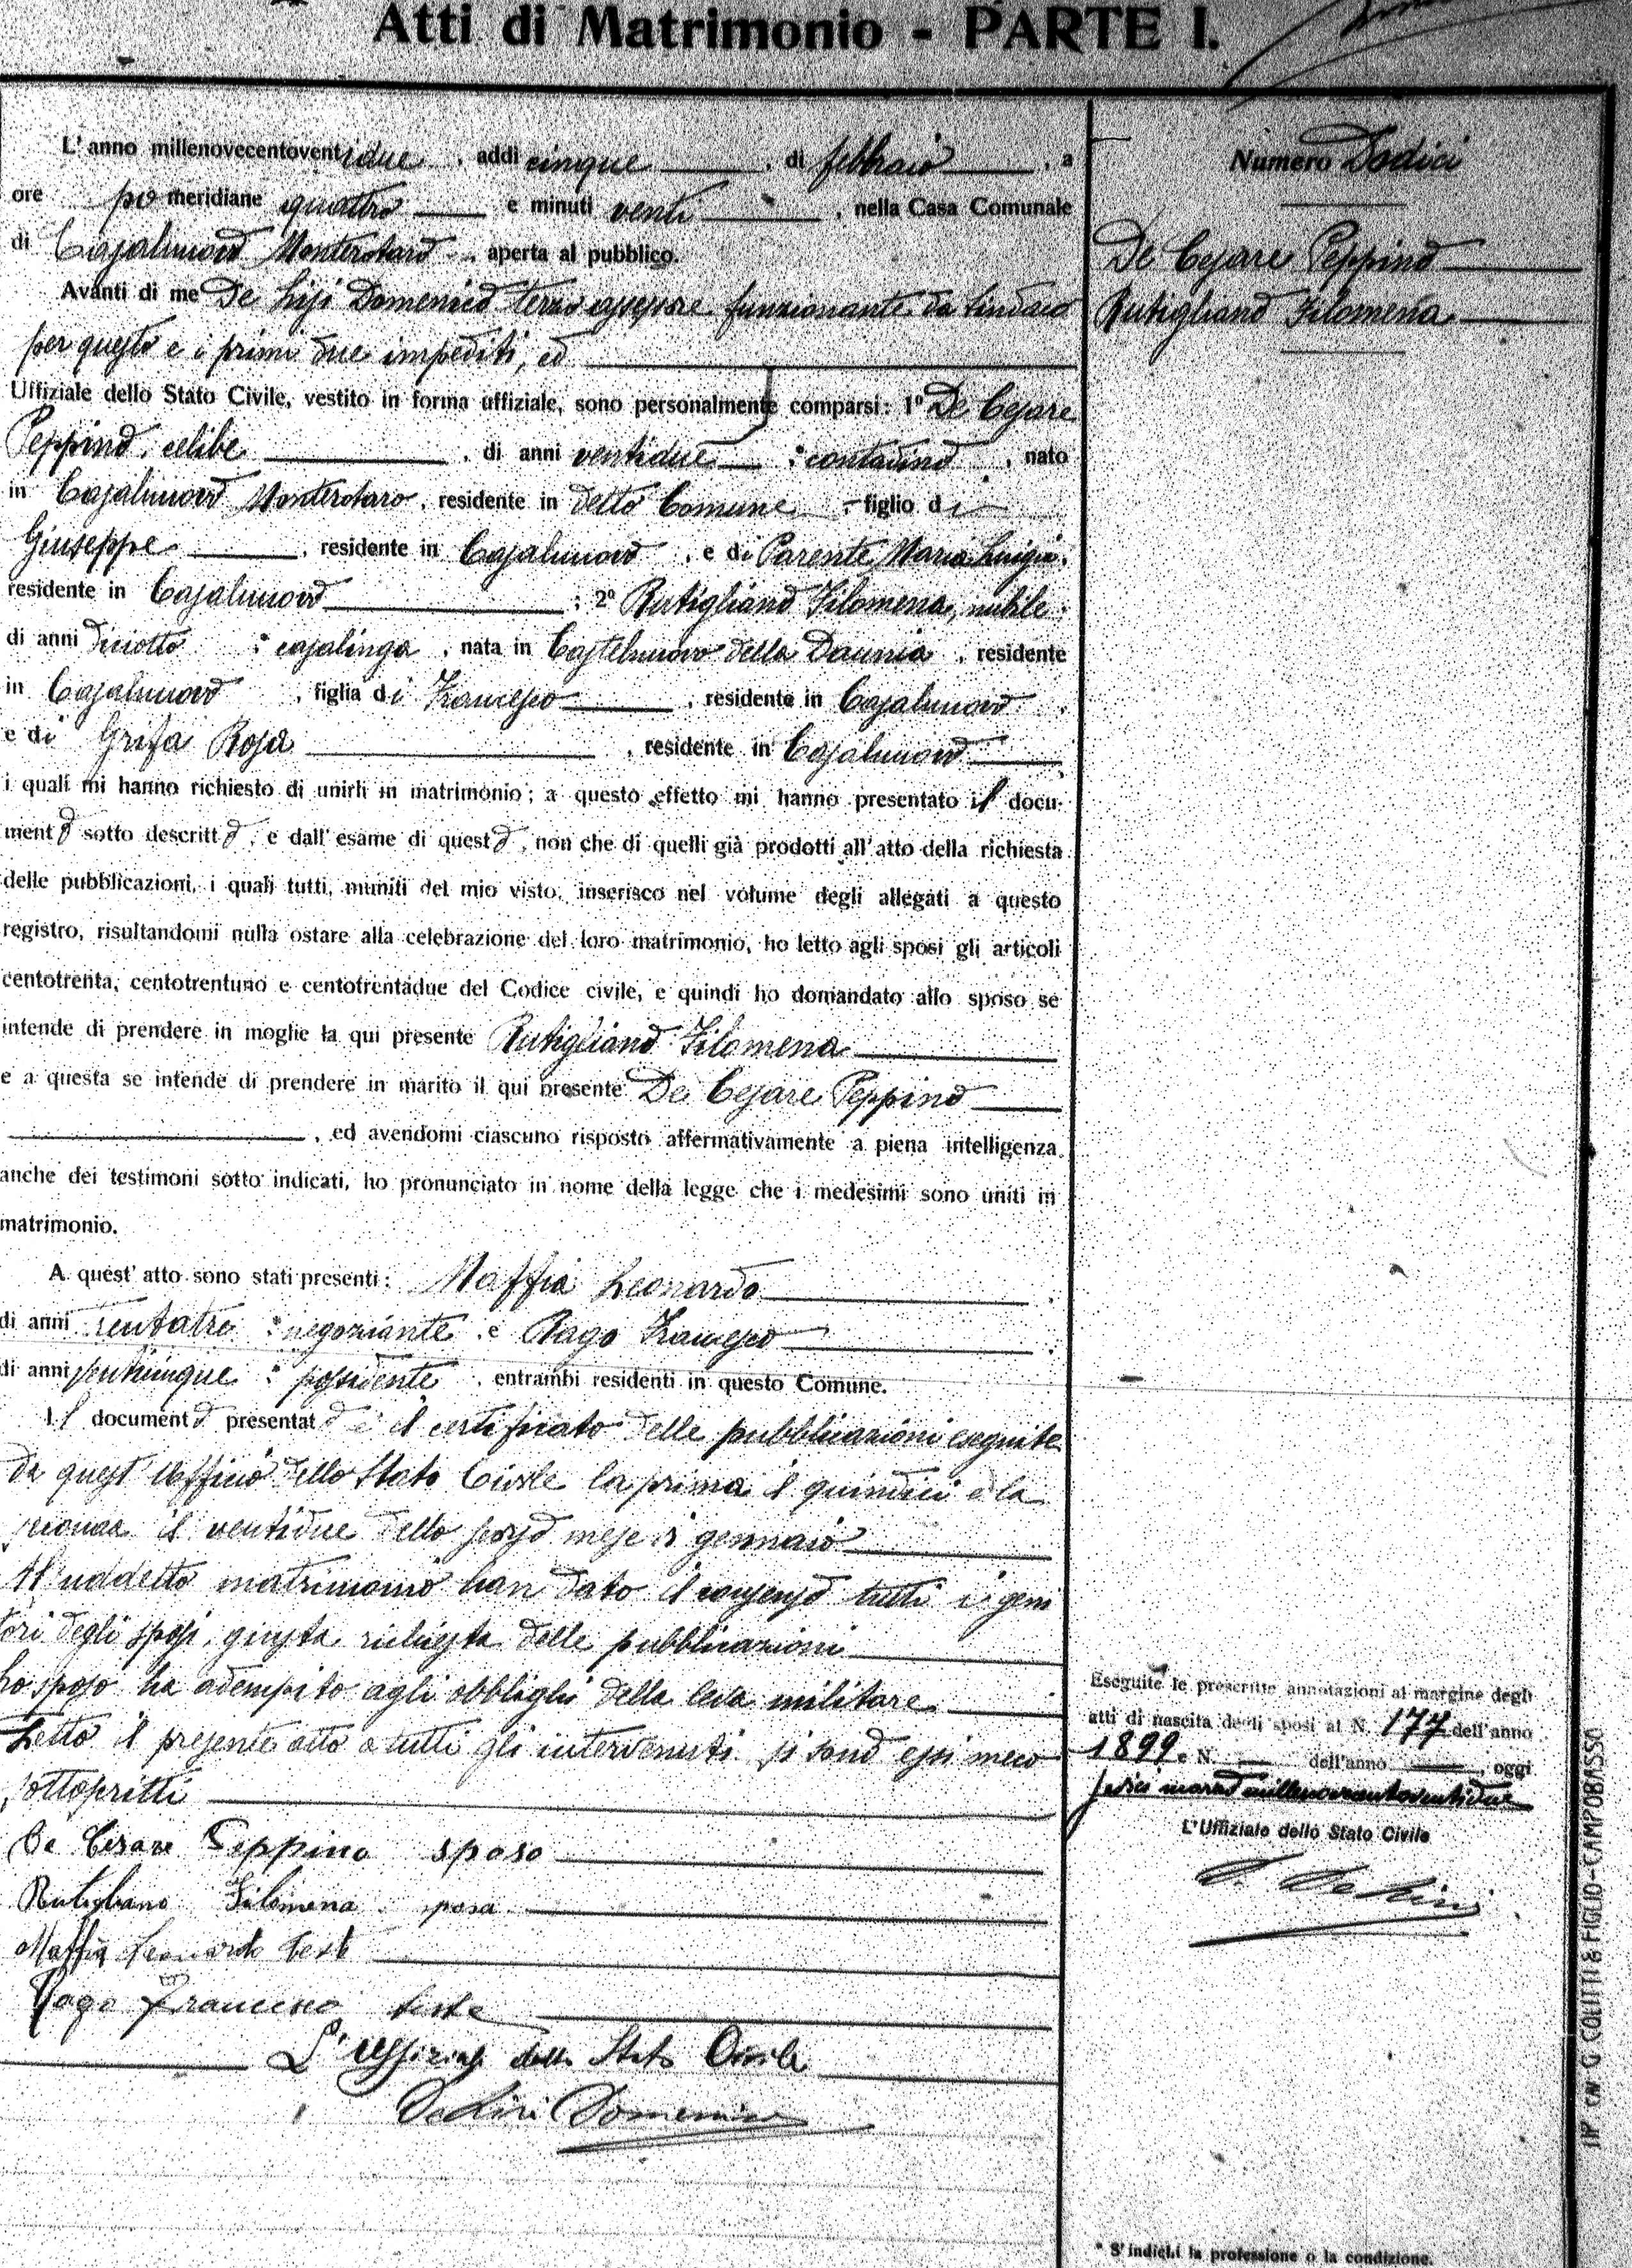 Atti di Matrimonio - PARTE I.
L'anno millenovecentoventidue, addì cinque, di febbraio, a
ore pomeridiane quattro e minuti venti, nella Casa Comunale
di Casalnuovo Monterotaro, aperta al pubblico.
Avanti di me De Lisi Domenico terzo assessore funzionante da Sindaco
per questo e i primi due impediti, ed
Uffiziale dello Stato Civile, vestito in forma uffiziale, sono personalmente comparsi: 1º De Cesare
Peppino, celibe, di anni ventidue, contadino, nato
in Casalnuovo Monterotaro, residente in detto Comune, figlio di
Giuseppe, residente in Casalnuovo, e di Parente Maria Luigia,
residente in Casalnuovo; 2º Rutigliano Filomena, nubile,
di anni diciotto, casalinga, nata in Castelnuovo della Daunia, residente
in Casalnuovo, figlia di Francesco, residente in Casalnuovo,
e di Grifa Rosa, residente in Casalnuovo
i quali mi hanno richiesto di unirli in matrimonio; a questo effetto mi hanno presentato il docu-
mento sotto descritto, e dall'esame di questo, non che di quelli già prodotti all'atto della richiesta
delle pubblicazioni, i quali tutti, muniti del mio visto, inserisco nel volume degli allegati a questo
registro, risultandomi nulla ostare alla celebrazione del loro matrimonio, ho letto agli sposi gli articoli
centotrenta, centotrentuno e centotrentadue del Codice civile, e quindi ho domandato allo sposo se
intende di prendere in moglie la qui presente Rutigliano Filomena
e a questa se intende di prendere in marito il qui presente De Cesare Peppino
, ed avendomi ciascuno risposto affermativamente a piena intelligenza
anche dei testimoni sotto indicati, ho pronunciato in nome della legge che i medesimi sono uniti in
matrimonio.
A quest'atto sono stati presenti: Maffia Leonardo,
di anni, negoziante, e Rago Francesco,
di anni, possidente, entrambi residenti in questo Comune.
Il documento presentato è il certificato delle pubblicazioni eseguite
da quest'Ufficio dello Stato Civile la prima il quindici e la
seconda il ventidue dello scorso mese di gennaio
Al suddetto matrimonio han dato il consenso tutti i geni
tori degli sposi, giusta richiesta delle pubblicazioni
Lo sposo ha adempito agli obblighi della leva militare
Letto il presente atto a tutti gli intervenuti si sono essi meco
sottoscritti
De Cesare Peppino sposo
Rutigliano Filomena sposa
Maffia Leonardo teste
Rago Francesco teste
L'Uffiziale dello Stato Civile
De Lisi Domenico
Numero Dodici
De Cesare Peppino
Rutigliano Filomena
Eseguite le prescritte annotazioni al margine degli
atti di nascita degli sposi al N. 177 dell'anno
1899 e N. dell'anno, oggi
sedici marzo millenovecentoventidue
L'Uffiziale dello Stato Civile
D. De Lisi
TIP. G. COLITTI & FIGLIO-CAMPOBASSO
* S'indichi la professione o la condizione.